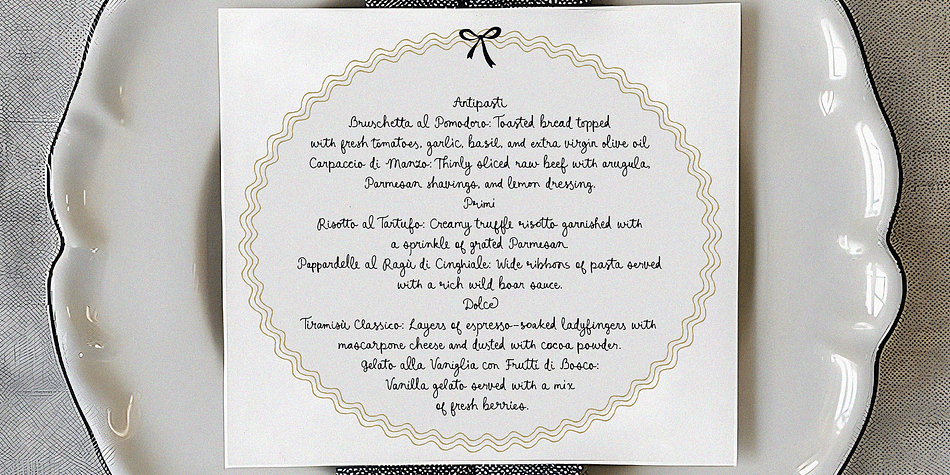 Antipasti
Bruschetta al Pomodoro: Toasted bread topped
with fresh tomatoes, garlic, basil, and extra virgin olive oil
Carpaccio di Manzo: Thinly sliced raw beef with arugula,
Parmesan shavings, and lemon dressing.
Primi
Risotto al Tartufo: Creamy truffle risotto garnished with
a sprinkle of grated Parmesan.
Pappardelle al Ragù di Cinghiale: Wide ribbons of pasta served
with a rich wild boar sauce.
Dolce
Tiramisù Classico: Layers of espresso-soaked ladyfingers with
mascarpone cheese and dusted with cocoa powder.
Gelato alla Vaniglia con Frutti di Bosco:
Vanilla gelato served with a mix
of fresh berries.